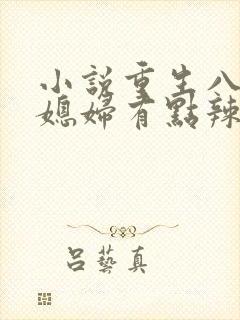 小説重生八
媳婦有點辣
呂藝真